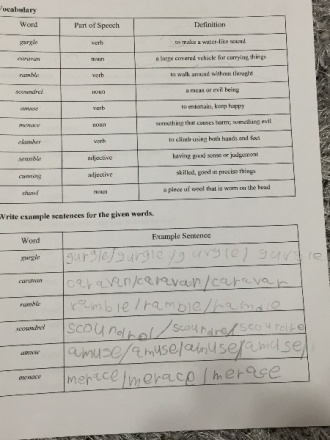 Vocabulary
Word Part of Speech Definition
gurgle verb to make a water-like sound
caravan noun a large covered vehicle for carrying things
ramble verb to walk around without thought
scoundrel noun a mean or evil being
amuse verb to entertain, keep happy
menace noun something that causes harm; something evil
clamber verb to climb using both hands and feet
sensible adjective having good sense or judgement
cunning adjective skilled, good at precise things
shawl noun a piece of wool that is worn on the head
Write example sentences for the given words.
Word Example Sentence
gurgle gurgle/gurgle/gurgle/gurgle
caravan caravan/caravan/caravar
ramble ramble/ramble/ramble
scoundrel scoundrel/scoundrel/scoundrel
amuse amuse/amuse/amuse/amuse/
menace menace/menace/menace